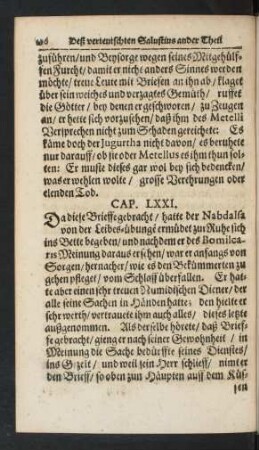 Deß verteutschten Salustius ander Theil
zuführen/ und Beysorge wegen seines Mitgehülf-
fen Furcht/ damit er nicht anders Sinnes werden
möchte/ treue Leute mit Briefen an ihn ab/ klaget
über sein weiches und verzagtes Gemüth/ ruffet
die Götter/ bey denen er geschworen/ zu Zeugen
an/ er hette sich vorzusehen/ daß ihm des Metelli
Versprechen nicht zum Schaden gereichete: Es
käme doch der Jugurtha nicht davon/ es beruhete
nur darauff/ ob sie oder Metellus es ihm thun sol-
ten: Er muste dieses gar wol bey sich bedencken/
was er wehlen wolte/ grosse Verehrungen oder
elenden Tod.
CAP. LXXI.
Da diese Brieffe gebracht/ hatte der Nabdalsa
von der Leibes-übunge ermüdet zur Ruhe sich
ins Bette begeben/ und nachdem er des Bomilca-
ris Meinung daraus ersehen/ war er anfangs von
Sorgen/ hernacher/ wie es den Bekümmerten zu
gehen pfleget/ vom Schlaff überfallen. Er hat-
te aber einen sehr treuen Numidischen Diener/ der
alle seine Sachen in Händen hatte: den hielte er
sehr werth/ vertrauete ihm auch alles/ dieses letzte
außgenommen. Als derselbe hörete/ daß Brief-
fe gebracht/ gieng er nach seiner Gewohnheit/ in
Meinung die Sache bedürffte seines Dienstes/
ins Gezelt/ und weil sein Herr schlieff/ nimt er
den Brieff/ so oben zun Häupten auff dem Küs-
sen